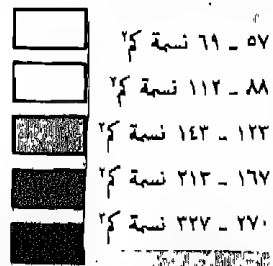 ٥٧ ــ ٦٩ نسمة كم٢
٨٨ ــ ١١٢ نسمة كم٢
١٢٣ ــ ١٤٣ نسمة كم٢
١٦٧ ــ ٢١٣ نسمة كم٢
٢٧٠ ــ ٣٢٧ نسمة كم٢